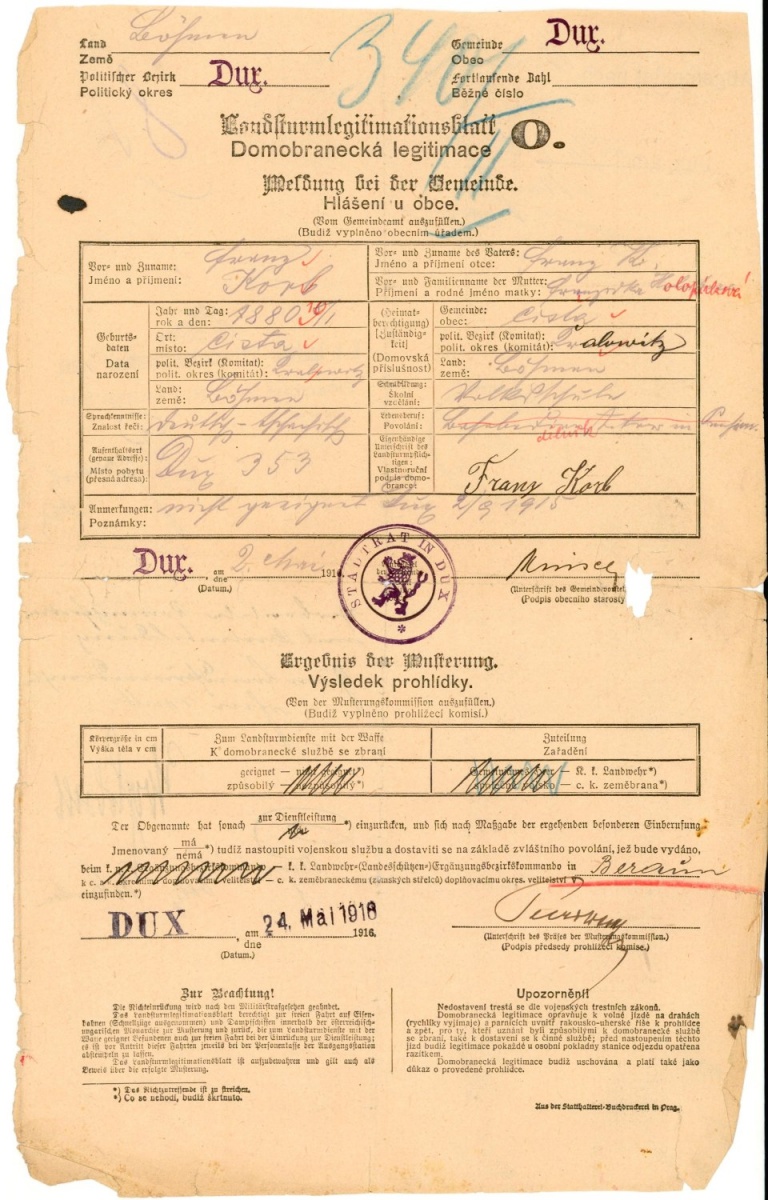 Land Böhmen
Země
Gemeinde Dux.
Obec
Politischer Bezirk Dux.
Politický okres
Fortlaufende Zahl
Běžné číslo
Landsturmlegitimationsblatt
Domobranecká legitimace
O.
Meldung bei der Gemeinde.
Hlášení u obce.
(Vom Gemeindeamt auszufüllen.)
(Budiž vyplněno obecním úřadem.)
Vor- und Zuname: Franz
Jméno a příjmení: Korb
Vor- und Zuname des Vaters: Franz K.
Jméno a příjmení otce:
Vor- und Familienname der Mutter:
Příjmení a rodné jméno matky:
Geburtsdaten
Data narození
Jahr und Tag: 1880
rok a den:
Ort: Cista
místo:
polit. Bezirk (Komitat):
polit. okres (komitát):
Land: Böhmen
země:
(Heimatberechtigung)
(Zuständigkeit)
(Domovská příslušnost)
Gemeinde: Cista
obec:
polit. Bezirk (Komitat):
polit. okres (komitát):
Land: Böhmen
země:
Sprachkenntnisse:
Znalost řečí: deutsch
Schulbildung: Volksschule
Školní vzdělání:
Lebensberuf:
Povolání:
Aufenthaltsort (genaue Adresse): Dux 353
Místo pobytu (přesná adresa):
Eigenhändige Unterschrift des Landsturmpflichtigen:
Vlastnoruční podpis domobrance:
Franz Korb
Anmerkungen: nicht geeignet Dux 1915
Poznámky:
Dux. am 2. Mai 1916
dne
(Datum.)
STADTRAT IN DUX
(Unterschrift des Gemeindevorstehers)
(Podpis obecního starosty)
Ergebnis der Musterung.
Výsledek prohlídky.
(Von der Musterungskommission auszufüllen.)
(Budiž vyplněno prohlížecí komisí.)
Körpergröße in cm
Výška těla v cm
Zum Landsturmdienste mit der Waffe
K domobranecké službě se zbraní
Zuteilung
Zařadění
geeignet — nicht geeignet*)
způsobilý — nezpůsobilý*)
Gemeinsames Heer — K. k. Landwehr*)
společné vojsko — c. k. zeměbrana*)
Der Obgenannte hat sonach zur Dienstleistung *) einzurücken, und sich nach Maßgabe der ergehenden besonderen Einberufung
Jmenovaný má / nemá *) tudíž nastoupiti vojenskou službu a dostaviti se na základě zvláštního povolání, jež bude vydáno,
beim k. u. k. Ergänzungsbezirkskommando — k. k. Landwehr-(Landesschützen-)Ergänzungsbezirkskommando in Beraun
k c. a k. okresnímu doplňovacímu velitelství — c. k. zeměbraneckému (zemských střelců) doplňovacímu okres. velitelství v
einzufinden.*)
DUX am 24. Mai 1916 1916.
dne
(Datum.)
(Unterschrift des Präses der Musterungskommission.)
(Podpis předsedy prohlížecí komise.)
Zur Beachtung!
Die Nichteinrückung wird nach den Militärstrafgesetzen geahndet.
Das Landsturmlegitimationsblatt berechtigt zur freien Fahrt auf Eisenbahnen (Schnellzüge ausgenommen) und Dampfschiffen innerhalb der österreichisch-ungarischen Monarchie zur Musterung und zurück, die zum Landsturmdienste mit der Waffe geeignet Befundenen auch zur freien Fahrt bei der Einrückung zur Dienstleistung; es ist vor Antritt dieser Fahrten jeweils bei der Personenkasse der Ausgangsstation abstempeln zu lassen.
Das Landsturmlegitimationsblatt ist aufzubewahren und gilt auch als Beweis über die erfolgte Musterung.
*) Das Nichtzutreffende ist zu streichen.
*) Co se nehodí, budiž škrtnuto.
Upozornění!
Nedostavení trestá se dle vojenských trestních zákonů.
Domobranecká legitimace opravňuje k volné jízdě na drahách (rychlíky vyjímaje) a parnících uvnitř rakousko-uherské říše k prohlídce a zpět, pro ty, kteří uznáni byli způsobilými k domobranecké službě se zbraní, také k dostavení se k činné službě; před nastoupením těchto jízd budiž legitimace pokaždé u osobní pokladny stanice odjezdu opatřena razítkem.
Domobranecká legitimace budiž uschována a platí také jako důkaz o provedené prohlídce.
Aus der Statthalterei-Buchdruckerei in Prag.